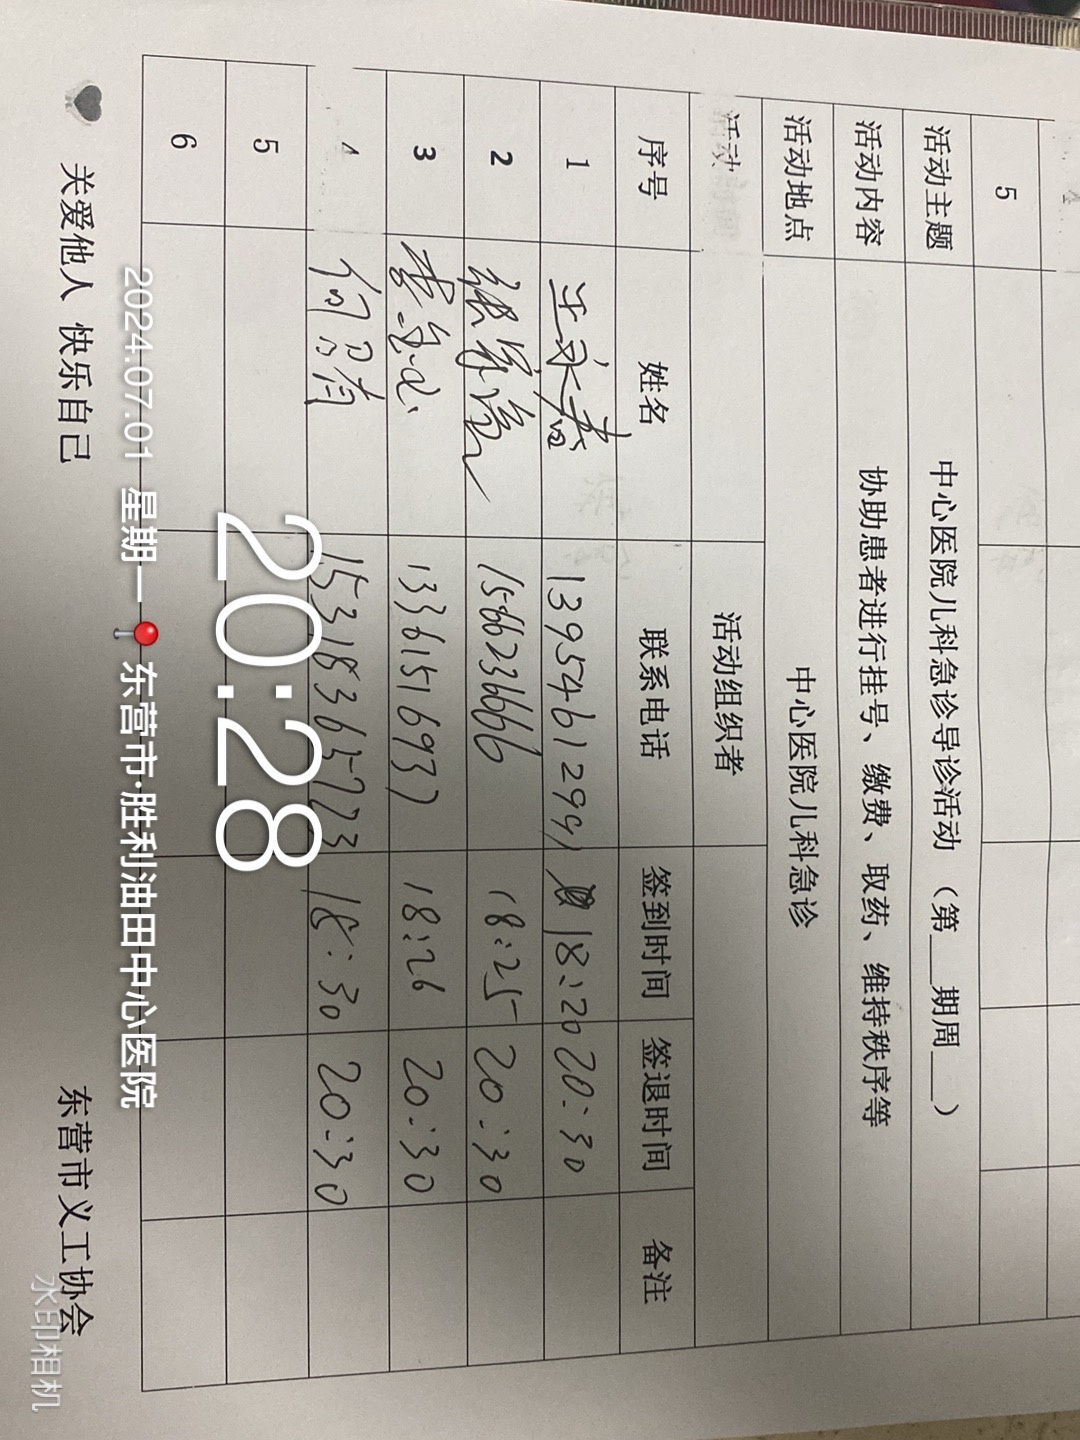 5
活动主题 中心医院儿科急诊导诊活动 （第___期周___）
活动内容 协助患者进行挂号、缴费、取药、维持秩序等
活动地点 中心医院儿科急诊
活动 活动组织者
序号 姓名 联系电话 签到时间 签退时间 备注
1 王永春 13954612991 18:20 20:30
2 15662366666 18:25 20:30
3 13361516937 18:26 20:30
4 15318365773 18:30 20:30
5
6
关爱他人 快乐自己 东营市义工协会
20:28
2024.07.01 星期一 东营市·胜利油田中心医院
水印相机